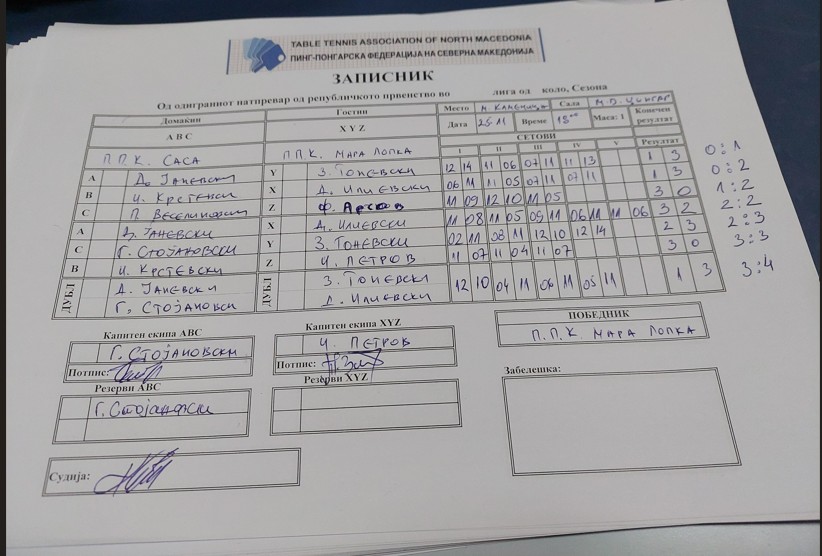 TABLE TENNIS ASSOCIATION OF NORTH MACEDONIA
ПИНГ-ПОНГАРСКА ФЕДЕРАЦИЈА НА СЕВЕРНА МАКЕДОНИЈА
ЗАПИСНИК
Од одиграниот натпревар од републичкото првенство во лига од коло, Сезона
Домаќин Гостин Место М. КАМЕНИЦА Сала Конечен резултат
A B C X Y Z Дата 25.11 Време 18°° Маса: 1
СЕТОВИ
I II III IV V Резултат
П.П.К. САСА П.П.К. МАРА ЛОПКА
A Д. ЈАНЕВСКИ Y З. ТОНЕВСКИ 12 14 11 06 07 11 11 13 1 3 0:1
B И. КРСТЕВСКИ X Д. ИЛИЕВСКИ 06 11 11 05 07 11 07 11 1 3 0:2
C П. Z Ф. 11 09 12 10 11 05 3 0 1:2
A Д. ЈАНЕВСКИ X Д. ИЛИЕВСКИ 11 08 11 05 09 11 06 11 11 06 3 2 2:2
C Г. СТОЈАНОВСКИ Y З. ТОНЕВСКИ 02 11 08 11 12 10 12 14 2 3 2:3
B И. КРСТЕВСКИ Z Ч. ПЕТРОВ 11 07 11 04 11 07 3 0 3:3
ДУБЛ Д. ЈАНЕВСКИ ДУБЛ З. ТОНЕВСКИ 12 10 04 11 06 11 05 11 1 3 3:4
Г. СТОЈАНОВСКИ Д. ИЛИЕВСКИ
Капитен екипа ABC Капитен екипа XYZ ПОБЕДНИК
Г. СТОЈАНОВСКИ Ч. ПЕТРОВ П.П.К МАРА ЛОПКА
Потпис: Потпис: Забелешка:
Резерви ABC Резерви XYZ
Г. Стојановски
Судија: